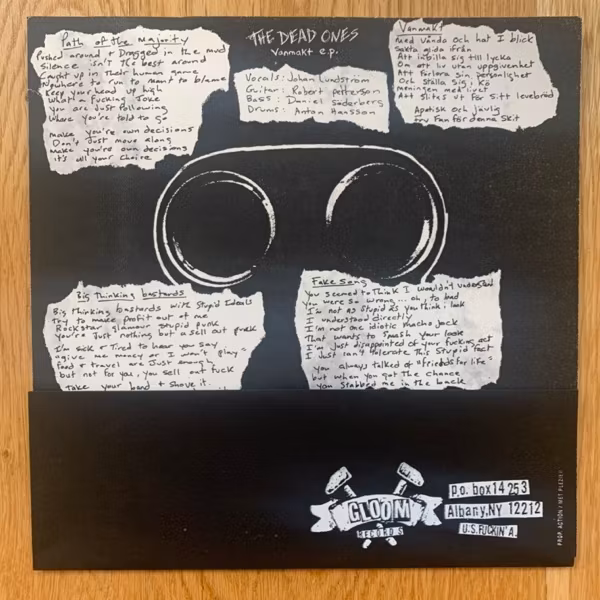 THE DEAD ONES
Vanmakt e.p.
Vocals: Johan Lundström
Guitar: Robert Petterson
Bass: Daniel Söderberg
Drums: Anton Hansson
Path of the Majority
Pushed around & Dragged in the mud
Silence isn't the best around
Caught up in their human game
Nowhere to run to man to blame
Keep your head up high
What a fucking joke
You are Just following
Where you're told to go
make you're own decisions
Don't Just move along
Make you're own decisions
it's all your choice
Vanmakt
Med Vånda och hat I blick
Sakta glida ifrån
Att inbilla sig till lycka
Om ett liv utan uppgivenhet
Att förlora sin personlighet
Och ställa sig i kö
meningen med livet
Att slitas ut för sitt levebröd
Apatisk och Jävlig
Fry Fan för denna Skit
Big Thinking bastards
Big Thinking bastards with Stupid Ideals
Try to make profit out of me
Rockstar glamour stupid punk
You're Just nothing but a sell out punk
I'm sick & Tired to hear you say
"give me money or I won't play"
food & travel are Just enough
but not for you, you sell out fuck
Take your band & Shove it...
Fake Song
You seemed to Think I wouldn't understand
You were so wrong... oh to bad
I'm not as Stupid as you think I look
I understood directly
I'm not one idiotic macho Jock
That wants to Smash your look
I'm Just disapointed of your fucking act
I Just can't tolerate This Stupid fact
you always talked of "friends for life"
but when you got The chance
You Stabbed me in the back
GLOOM
RECORDS
p.o. box 14253
Albany, NY 12212
U.S.FUCKIN'A.
PROP ACTION / MET PLEZIER